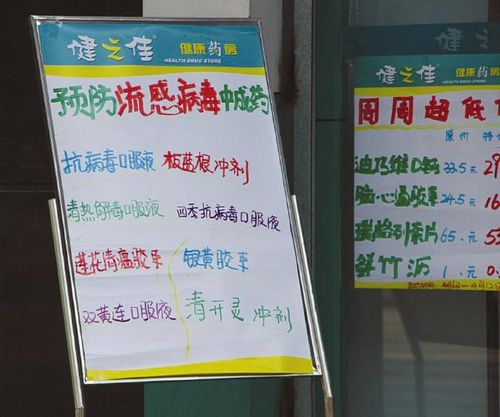 健之佳 健康药房
HEALTH DRUG STORE
预防流感病毒中成药
抗病毒口服液 板蓝根冲剂
清热解毒口服液 四季抗病毒口服液
莲花清瘟胶囊 银黄胶囊
双黄连口服液 清开灵冲剂
健之佳 健康药房
HEALTH DRUG STORE
周周超低
原价 特
迪巧维D钙 33.5元 29
脑心通胶囊 24.5元 16
片 65.元 5
鲜竹沥 1.元 0.